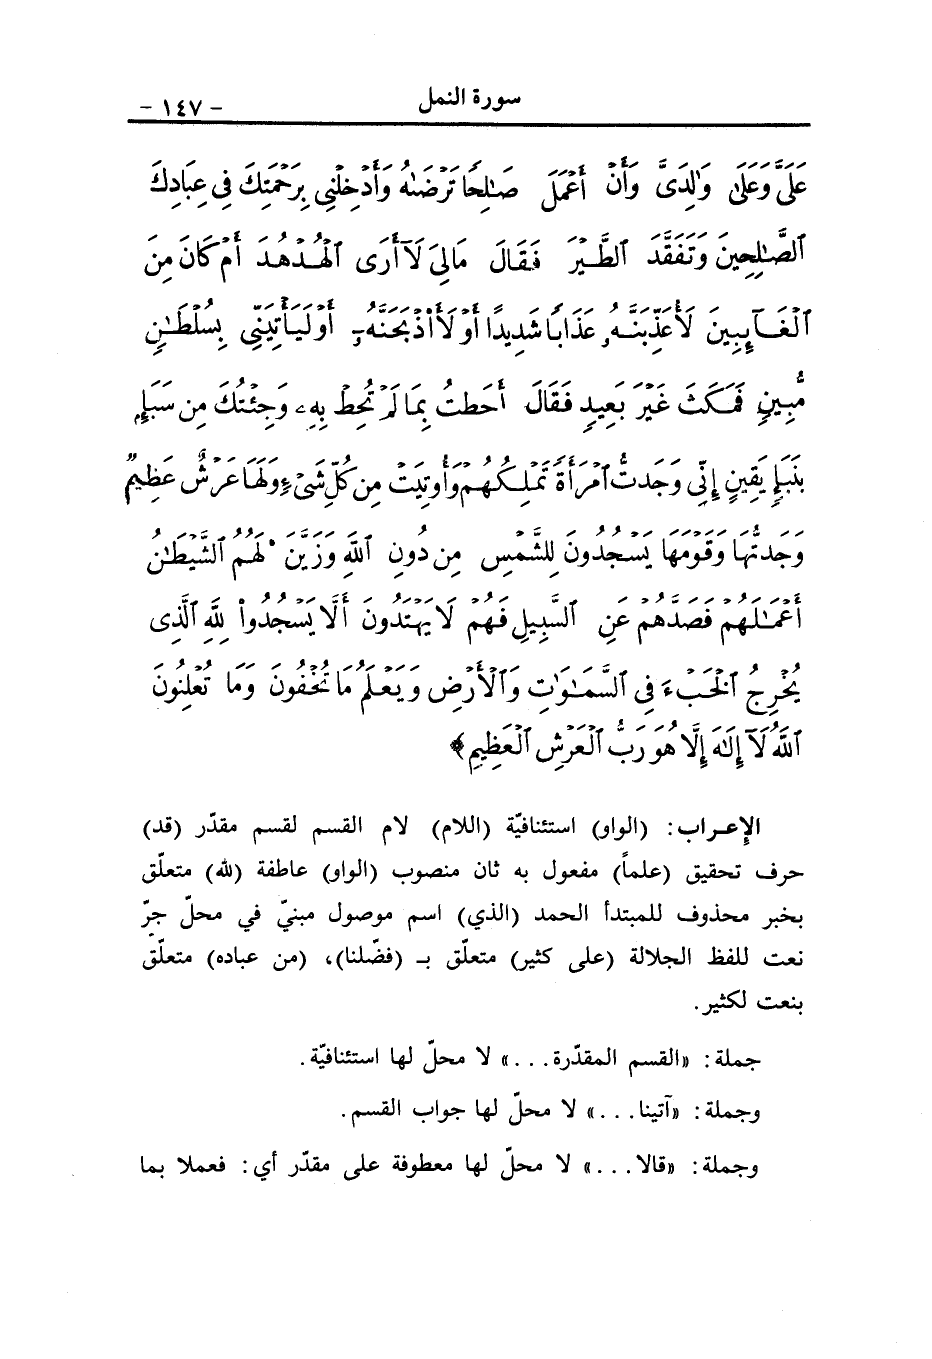 سورة النمل - ١٤٧ -
عَلَىَّ وَعَلَىٰ وَٰلِدَىَّ وَأَنْ أَعْمَلَ صَٰلِحًا تَرْضَىٰهُ وَأَدْخِلْنِى بِرَحْمَتِكَ فِى عِبَادِكَ
ٱلصَّٰلِحِينَ وَتَفَقَّدَ ٱلطَّيْرَ فَقَالَ مَالِىَ لَآ أَرَى ٱلْهُدْهُدَ أَمْ كَانَ مِنَ
ٱلْغَآئِبِينَ لَأُعَذِّبَنَّهُۥ عَذَابًا شَدِيدًا أَوْ لَأَا۟ذْبَحَنَّهُۥٓ أَوْ لَيَأْتِيَنِّى بِسُلْطَٰنٍ
مُّبِينٍ فَمَكَثَ غَيْرَ بَعِيدٍ فَقَالَ أَحَطتُ بِمَا لَمْ تُحِطْ بِهِۦ وَجِئْتُكَ مِن سَبَإٍۭ
بِنَبَإٍ يَقِينٍ إِنِّى وَجَدتُّ ٱمْرَأَةً تَمْلِكُهُمْ وَأُوتِيَتْ مِن كُلِّ شَىْءٍ وَلَهَا عَرْشٌ عَظِيمٌ
وَجَدتُّهَا وَقَوْمَهَا يَسْجُدُونَ لِلشَّمْسِ مِن دُونِ ٱللَّهِ وَزَيَّنَ لَهُمُ ٱلشَّيْطَٰنُ
أَعْمَٰلَهُمْ فَصَدَّهُمْ عَنِ ٱلسَّبِيلِ فَهُمْ لَا يَهْتَدُونَ أَلَّا يَسْجُدُوا۟ لِلَّهِ ٱلَّذِى
يُخْرِجُ ٱلْخَبْءَ فِى ٱلسَّمَٰوَٰتِ وَٱلْأَرْضِ وَيَعْلَمُ مَا تُخْفُونَ وَمَا تُعْلِنُونَ
ٱللَّهُ لَآ إِلَٰهَ إِلَّا هُوَ رَبُّ ٱلْعَرْشِ ٱلْعَظِيمِ﴾
الإعراب: (الواو) استئنافيّة (اللام) لام القسم لقسم مقدّر (قد)
حرف تحقيق (علماً) مفعول به ثان منصوب (الواو) عاطفة (لله) متعلّق
بخبر محذوف للمبتدأ الحمد (الذي) اسم موصول مبنيّ في محلّ جرّ
نعت للفظ الجلالة (على كثير) متعلّق بـ (فضّلنا)، (من عباده) متعلّق
بنعت لكثير.
جملة: «القسم المقدّرة...» لا محلّ لها استئنافيّة.
وجملة: «آتينا...» لا محلّ لها جواب القسم.
وجملة: «قالا...» لا محلّ لها معطوفة على مقدّر أي: فعملا بما